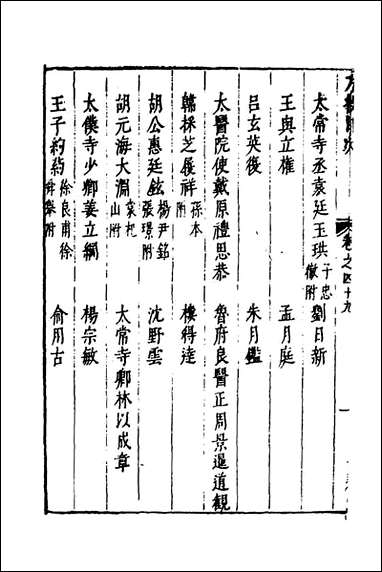 卷之四十九
太常寺丞袁廷玉珙子忠徹附　劉日新
王與立權　孟月庭
呂玄英復　朱月鑑
太醫院使戴原禮思恭　魯府良醫正周景暹道觀
韓採芝履祥孫本附　樓得達
胡公惠廷鉉楊尹銘張璟附　沈野雲
胡元海大淵袁杞山附　太常寺卿林以成章
太僕寺少卿姜立綱　楊宗敏
王子約約徐良甫徐舜舉附　俞用古